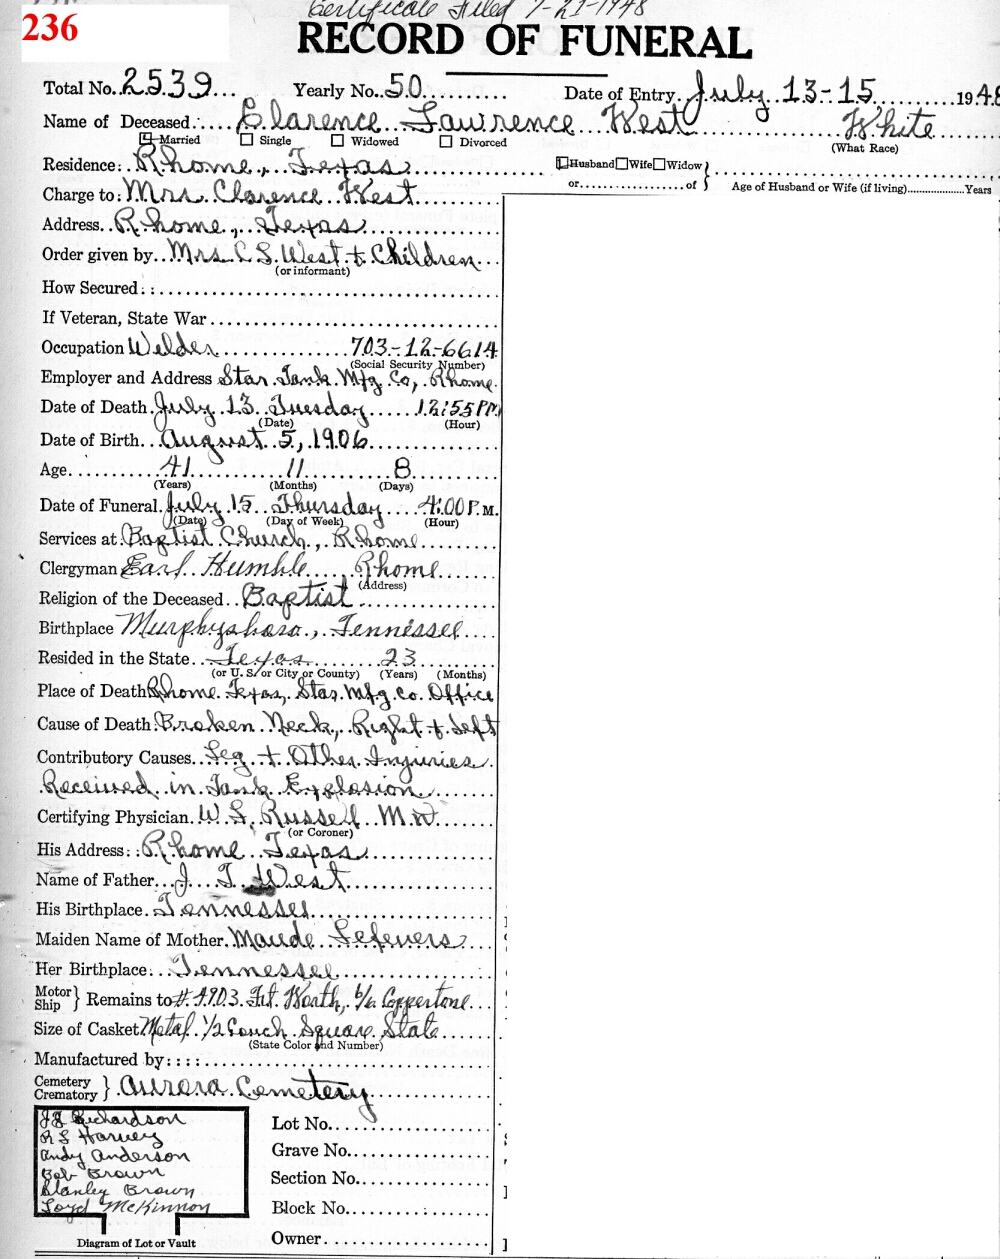 Certificate Filed 7-21-1948
236
RECORD OF FUNERAL
Total No. 2539 Yearly No. 50 Date of Entry July 13-15 1948
Name of Deceased Clarence Lawrence West White
Married Single Widowed Divorced (What Race)
Residence: Rhome, Texas Husband Wife Widow
or of Age of Husband or Wife (if living) Years
Charge to: Mrs. Clarence West
Address Rhome, Texas
Order given by Mrs. C L West + Children
(or informant)
How Secured
If Veteran, State War
Occupation Welder 703-12-6614
(Social Security Number)
Employer and Address Star Tank Mfg Co, Rhome
Date of Death July 13 Tuesday 12:55 PM
(Date) (Hour)
Date of Birth August 5, 1906
Age 41 11 8
(Years) (Months) (Days)
Date of Funeral July 15 Thursday 4:00 P.M.
(Date) (Day of Week) (Hour)
Services at Baptist Church, Rhome
Clergyman Earl Humble Rhome
(Address)
Religion of the Deceased Baptist
Birthplace Murphysboro, Tennessee
Resided in the State Texas 23
(or U. S. or City or County) (Years) (Months)
Place of Death Rhome Texas, Star Mfg. Co. Office
Cause of Death Broken Neck, Right + Left
Contributory Causes Leg + Other Injuries
Received in Tank Explosion
Certifying Physician W. L. Russell MD
(or Coroner)
His Address: Rhome Texas
Name of Father J T West
His Birthplace Tennessee
Maiden Name of Mother Maude Lefevers
Her Birthplace: Tennessee
Motor Ship } Remains to # 4903 Ft. Worth, 6/0 Coppertone
Size of Casket Metal 1/2 Couch Square State
(State Color and Number)
Manufactured by
Cemetery Crematory } Aurora Cemetery
J J Richardson
R L Harvey
Andy Anderson
Bob Brown
Stanley Brown
Loyd McKinnon
Lot No.
Grave No.
Section No.
Block No.
Owner
Diagram of Lot or Vault